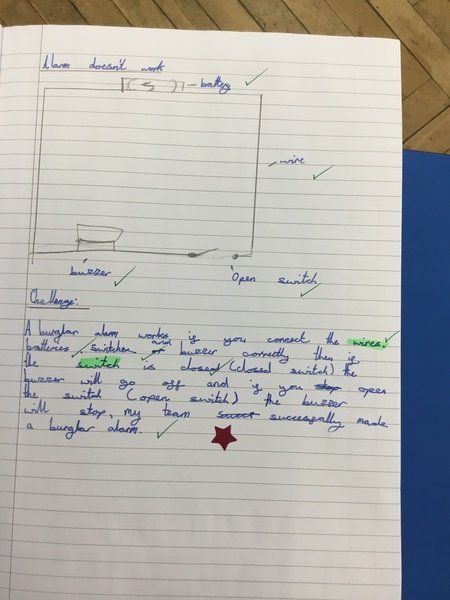 Alarm doesn't work
battery
wire
buzzer
Open switch
Challenge:
A burglar alarm works if you connect the wires,
batteries, switches and buzzer correctly then if
the switch is closed (closed switch) the
buzzer will go off and if you stop open
the switch (open switch) the buzzer
will stop, my team succesfully made
a burglar alarm.